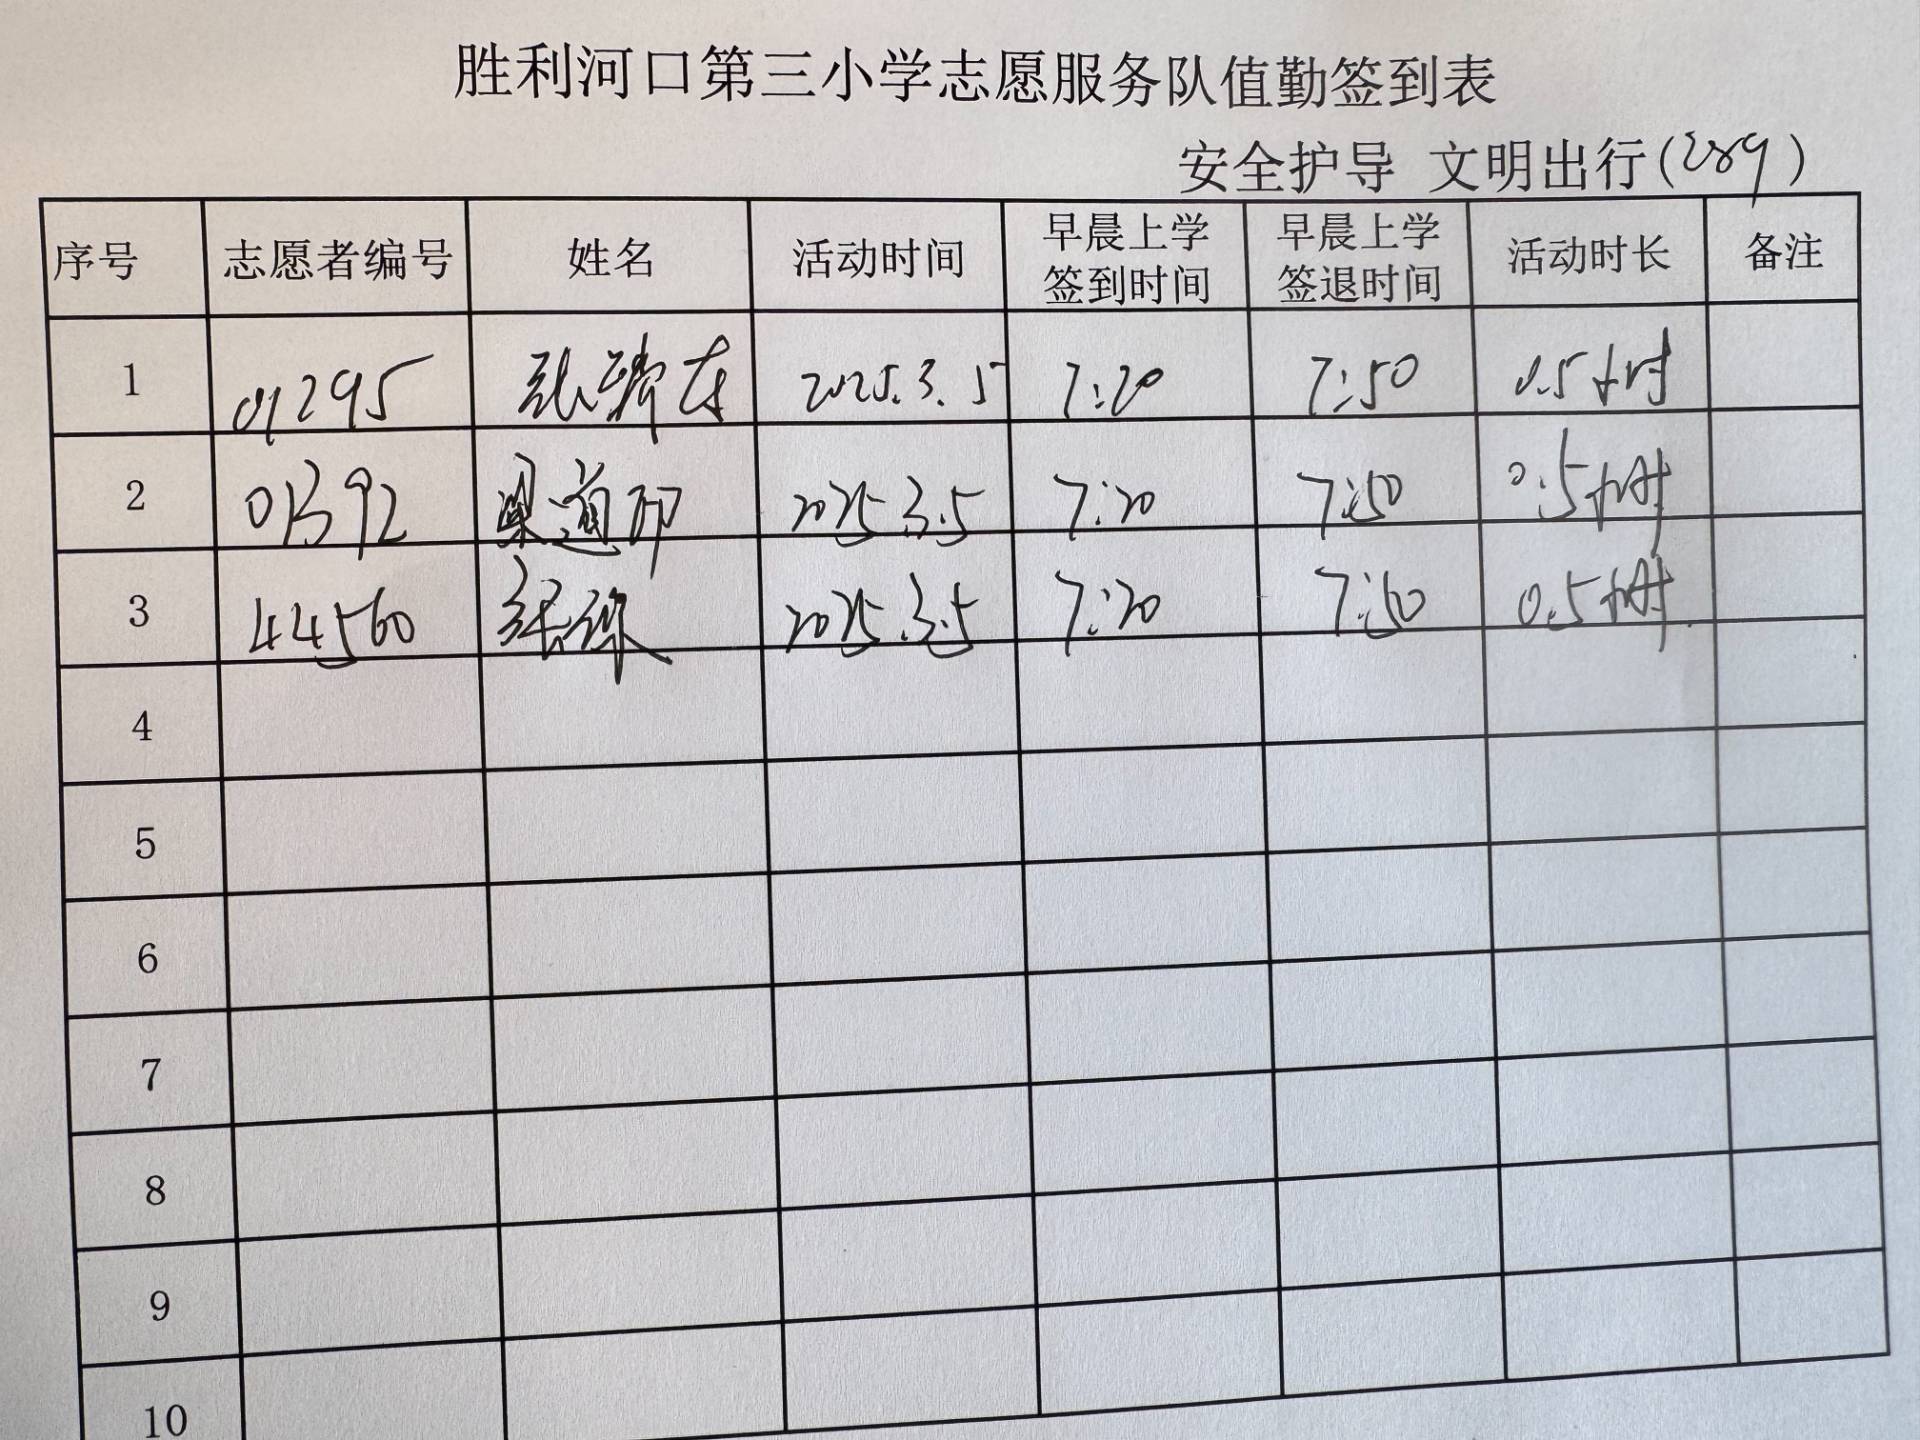 胜利河口第三小学志愿服务队值勤签到表
安全护导 文明出行(289)
序号 志愿者编号 姓名 活动时间 早晨上学签到时间 早晨上学签退时间 活动时长 备注
1 01295 2025.3.5 7:20 7:50 0.5小时
2 01392 梁道 2025.3.5 7:20 7:50 0.5小时
3 44560 2025.3.5 7:20 7:50 0.5小时
4
5
6
7
8
9
10